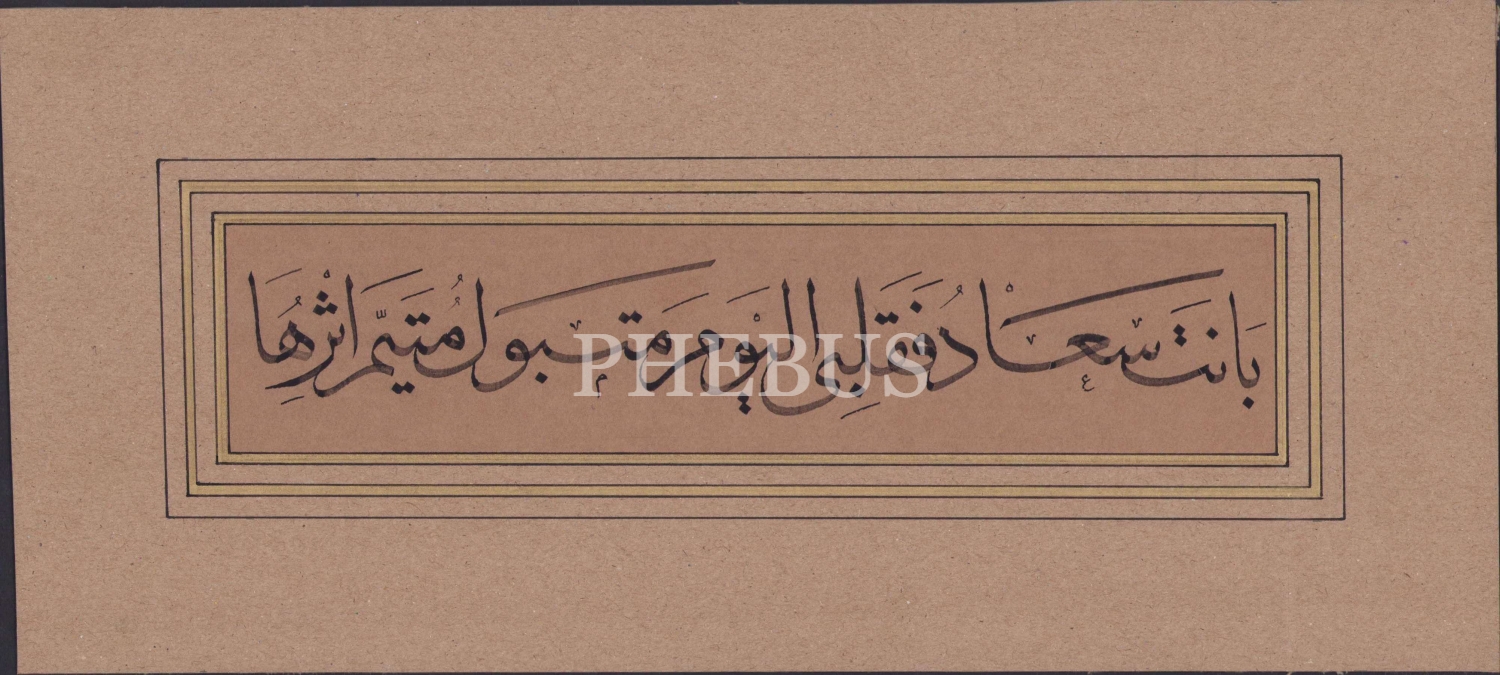 بانت سعاد فقلبي اليوم متبول متيم اثرها
PHEBUS